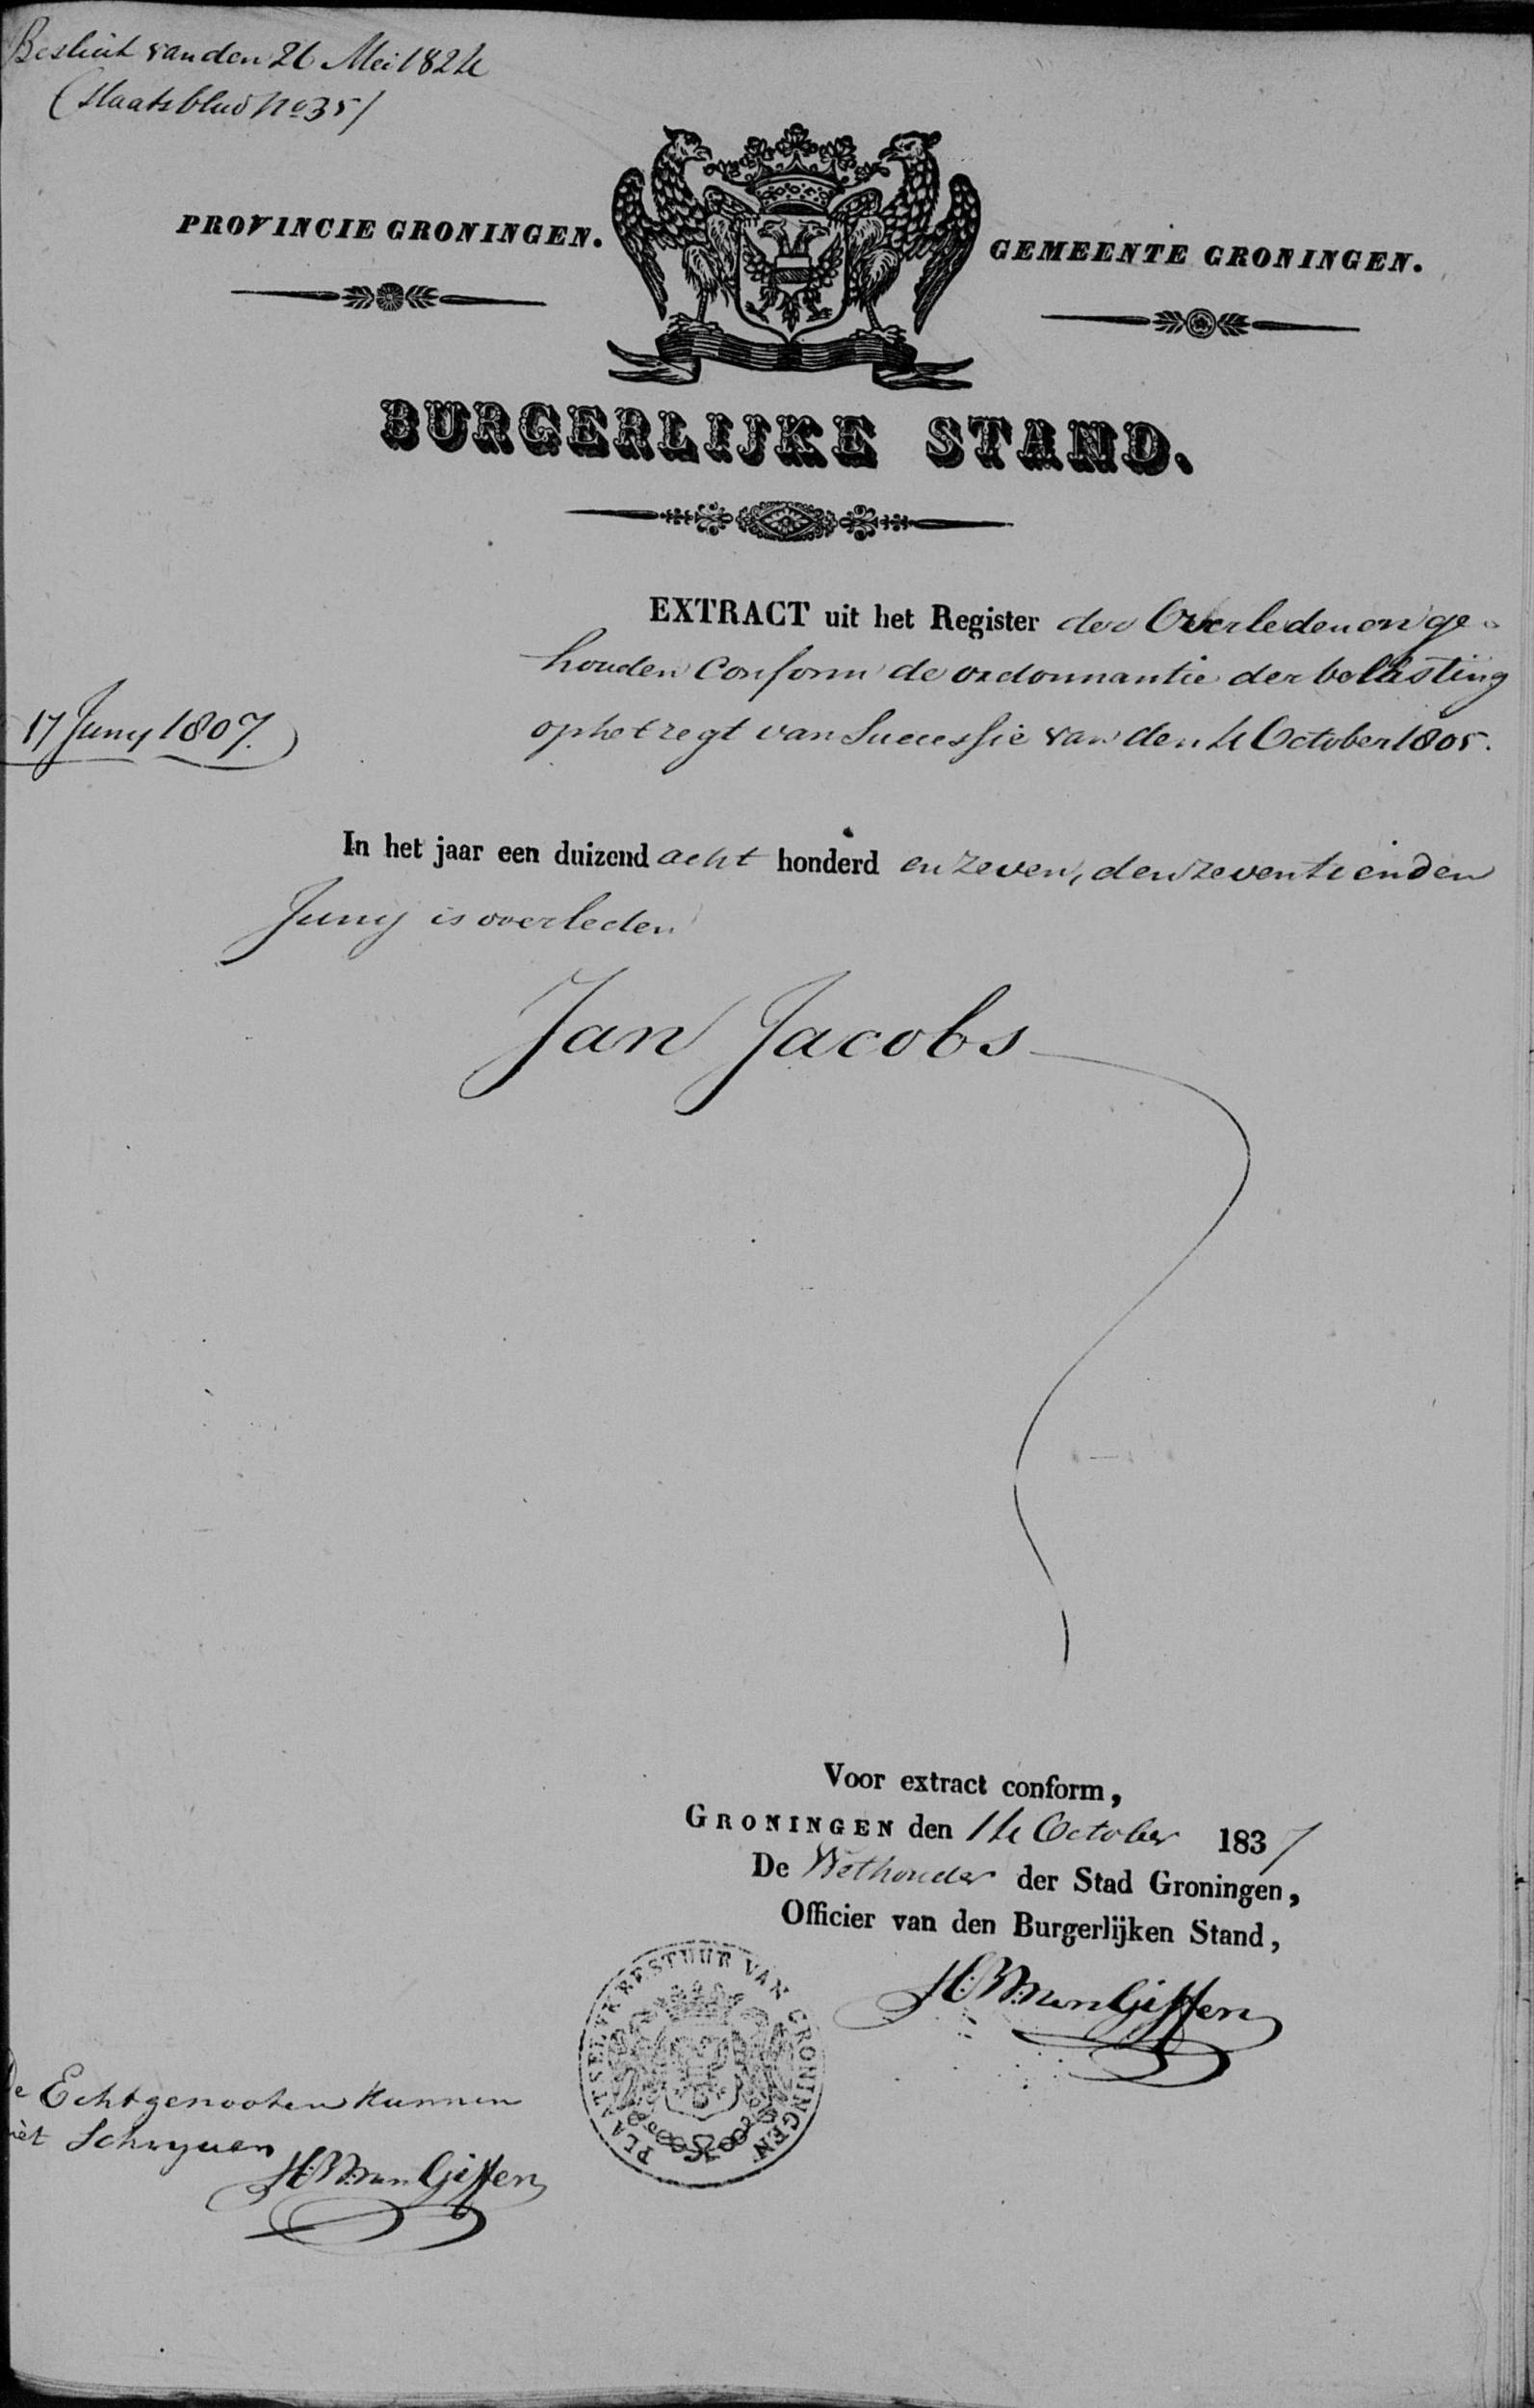 Besluit van den 26 Mei 1824
(Staatsblad No 35)
PROVINCIE GRONINGEN.
GEMEENTE GRONINGEN.
BURGERLIJKE STAND.
EXTRACT uit het Register der Overledenen ge-
houden conform de ordonnantie der belasting
17 Juny 1807.
op het regt van Successie van den 4 October 1805.
In het jaar een duizend acht honderd en zeven, den zeventienden
Junij is overleden
Jan Jacobs
Voor extract conform,
GRONINGEN den 14 October 1837
De Wethouder der Stad Groningen,
Officier van den Burgerlijken Stand,
H: van Giffen
PLAATSELYK BESTUUR VAN GRONINGEN
De Echtgenooten kunnen
niet Schryven
H: van Giffen